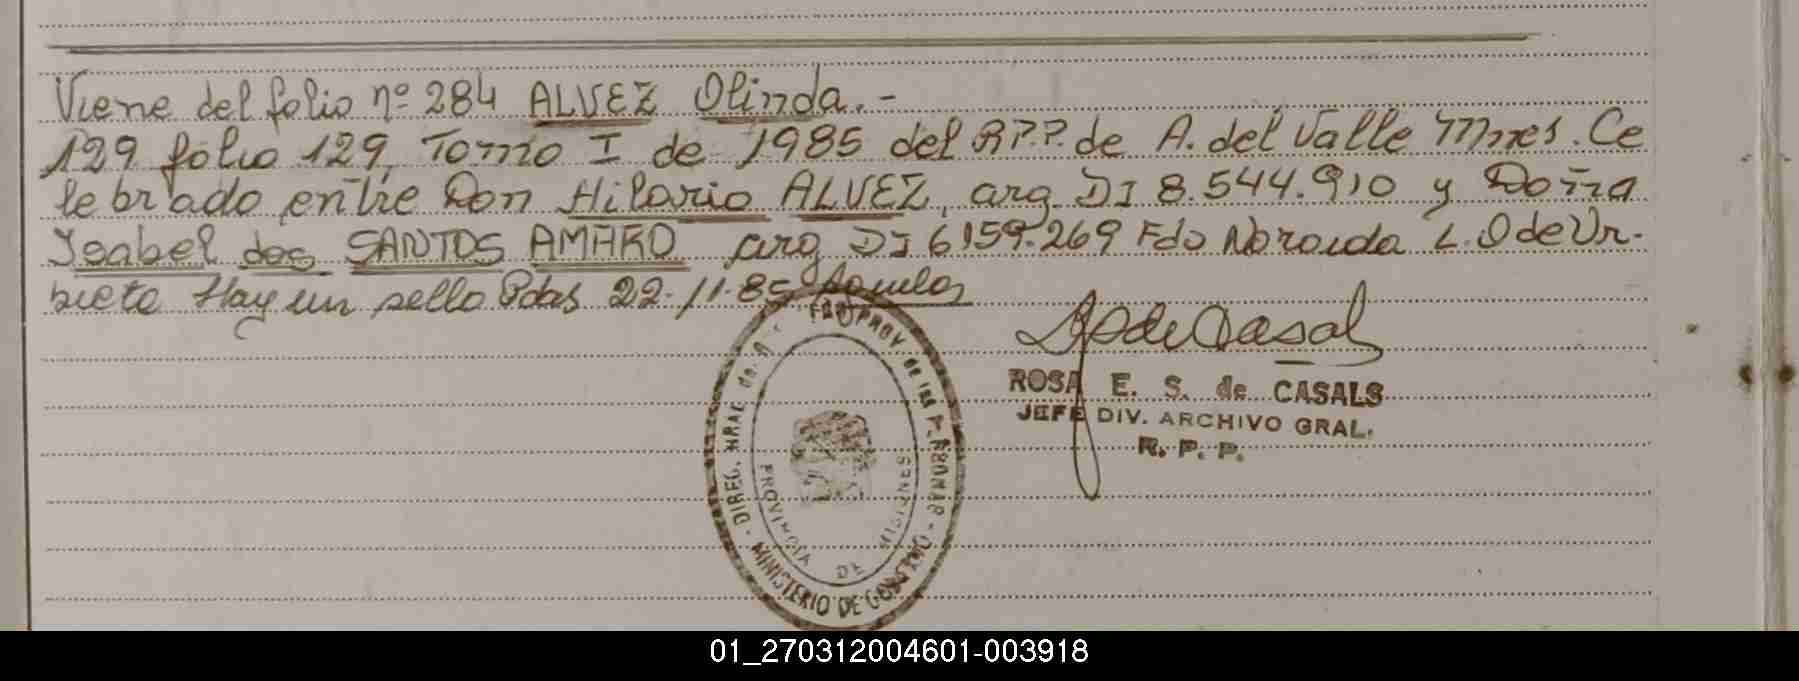 Viene del folio nº 284 ALVEZ Olinda.-
129 folio 129, Tomo I de 1985 del R.P.P. de A. del Valle Mnes. Ce
lebrado entre Don Hilario ALVEZ, arg. DI 8.544.910 y Doña
Isabel dos SANTOS AMARO arg DI 6159.269 Fdo L. O de Ur-
bieta Hay un sello Pdas 22-11-85
ROSA E. S. de CASALS
JEFE DIV. ARCHIVO GRAL.
R. P. P.
PROV. de las PERSONAS - MINISTERIO DE GOBIERNO - DIREC. GRAL. de
PROVINCIA DE MISIONES
01_270312004601-003918